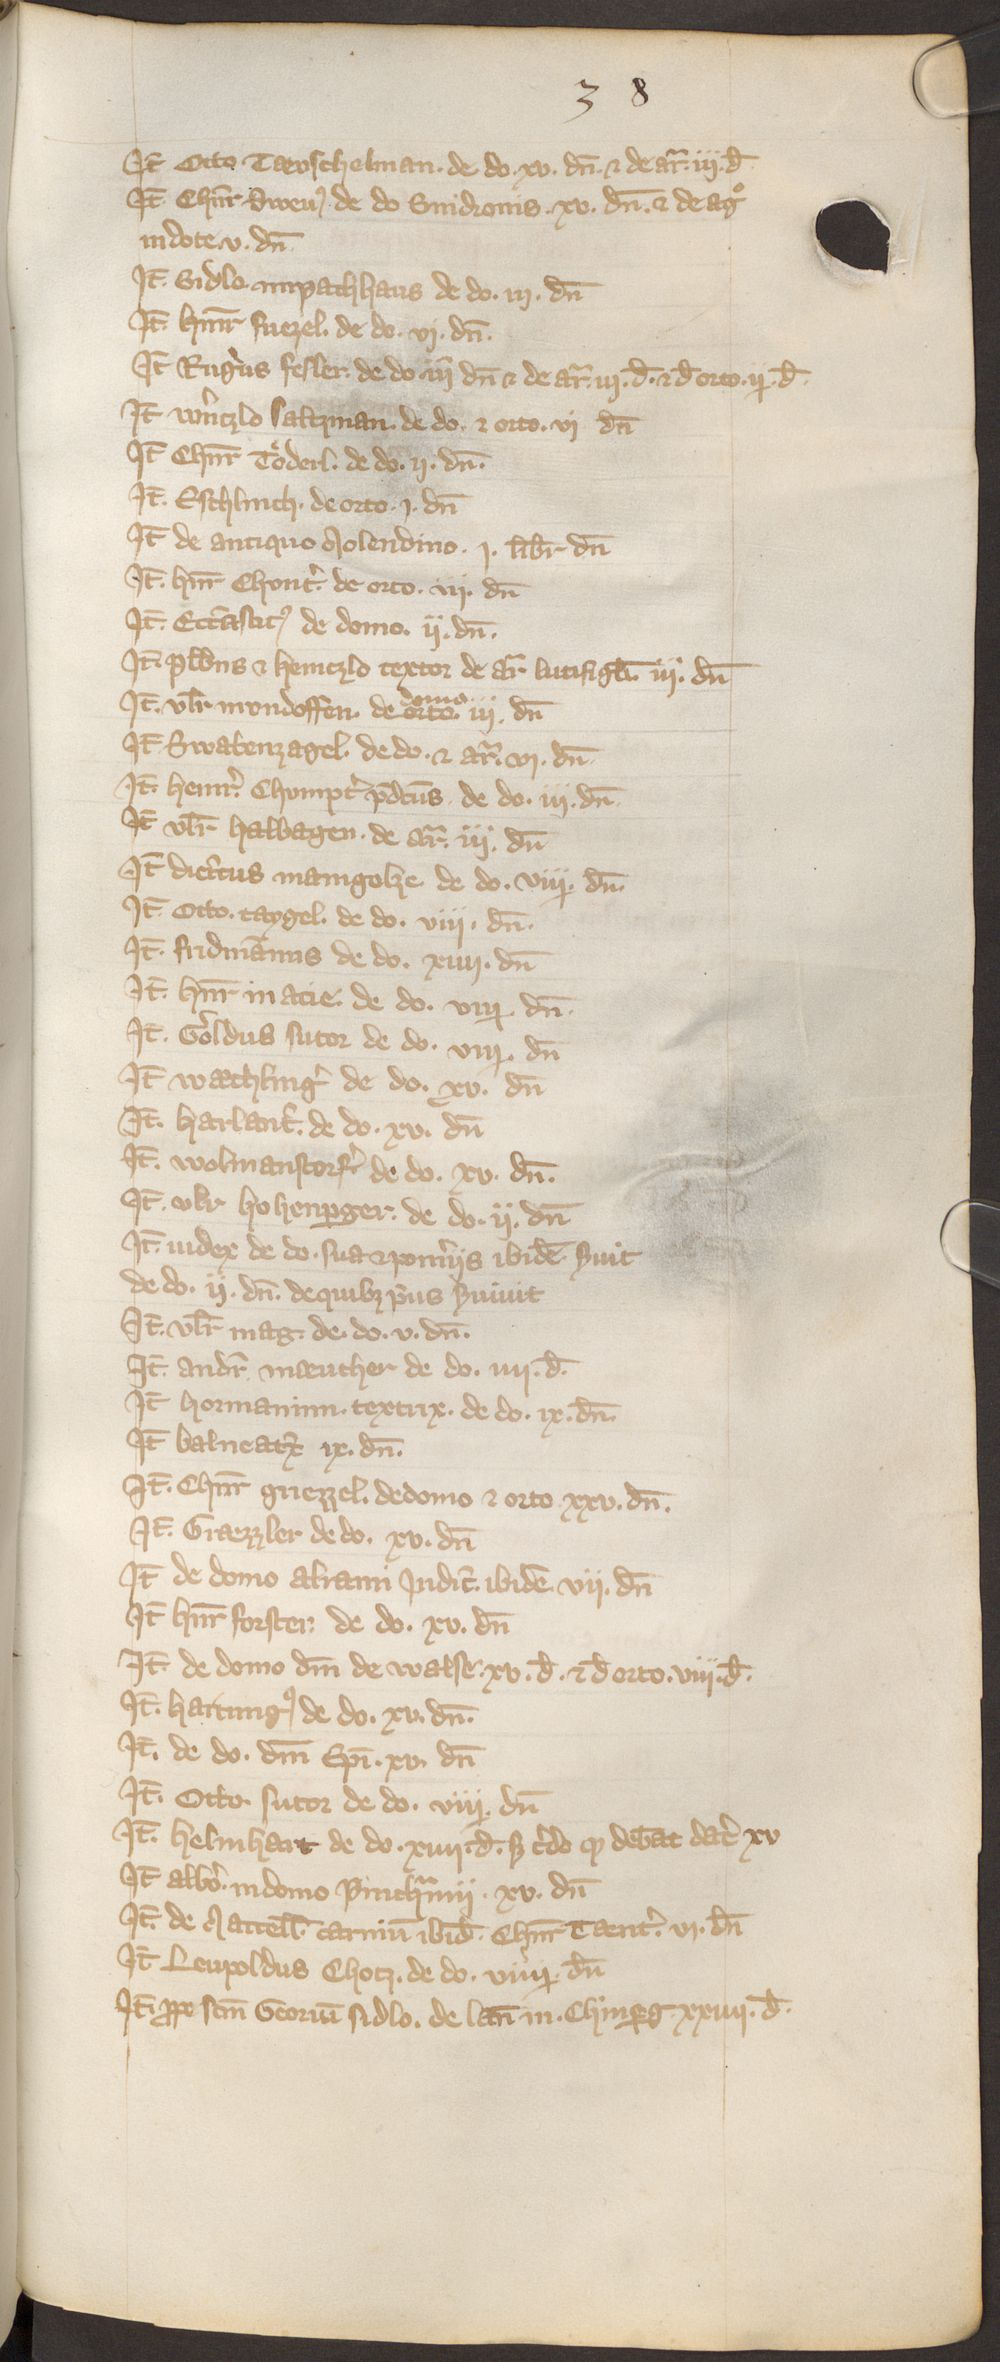 38
It̄ Otto Tewschelman. de do. xv. dn̄. ⁊ de ar̄. iij. d̄
It̄. Chn̄r de do Smidronis. xv. dn̄. ⁊ de agº
in dote. v. dn̄
It̄. Sidlo. impachhaus de do. iij. dn̄
It̄. hnr̄ Suezel. de do. vj. dn̄.
It̄ Rug̾us fesler. de do. iij dn̄ ⁊ de ar̄. iij. d̄. ⁊ d̄ orto. ij. d̄.
It̄ w̾nczlo Saltzman. de do. ⁊ orto. vj dn̄
It̄ Chnr̄ Tȍderl. de do. ij. dn̄.
It̄. Eschlinch. de orto. j. dn̄
It̄ de antiquo Molendino. j. libr̄ dn̄
It̄. hnr̄ Chont̾. de orto. iij. dn̄
It̄. de domo. ij. dn̄.
It̄. plb̄nus ⁊ heinczlo textor de ar̄ iij. dn̄
It̄. vlr̄ mvndoffen. de orto. domo iij. dn̄
It̄ Swalenzagel. de do. ⁊ ar̄. vj. dn̄
It̄. heinr̾. Chvmpt̾ p̄dc̄us. de do. iij. dn̄
It̄ vlr̄ halbagen. de ar̄. iij. dn̄
It̄ diet̾cus maingolze de do. viij. dn̄.
It̄. Otto. taygel. de do. viij. dn̄.
It̄. fridmān̄us de do. xiiij. dn̄
It̄. hnr̄ in acie. de do. viij. dn̄.
It̄. G̾oldus sutor de do. viij. dn̄
It̄ wæchling̾ de do. xv. dn̄
It̄. harlant̾. de do. xv. dn̄
It̄. wolmanstorf̾ de do. xv. dn̄.
It̄. vlr̄ hohenperger. de do. ij. dn̄
It̄. iudex de do. sua ⁊ pom̾ijs ibidē s̾uit
de do. ij. dn̄. de quibꝫ p̾us s̾uiuit
It̄. vlr̄ mag. de. do. v. dn̄.
It̄. andr̄ mæucher de do. iiij. d̄.
It̄ hormannin. textrix. de do. ix. dn̄.
It̄ balneatꝛ̾ ix. dn̄.
It̄. Chnr̄ griezzel. de domo ⁊ orto xxv. dn̄.
It̄. Græzzler de do. xv. dn̄
It̄ de domo alrami Judic̄. ibidē vij. dn̄
It̄ hnr̄ forster. de do. xv. dn̄
It̄. de domo dm̄ de walse. xv. d̄. ⁊ d̄ orto. viij. d̄.
It̄. hartungꝰ de do. xv. dn̄.
It̄. de do. dm̄ Epī. xv. dn̄
It̄. Otto. sutor de do. viij. dn̄
It̄. helmhart de do. xiiij. d̄. debeat dar̾ xv
It̄ alb̾o. in domo xv. dn̄
It̄. de Macell̄ carniū ibid̄. Chnr̄ Tænt̾. vj. dn̄
It̄ Leupoldus Choczl. de do. viij. dn̄
It̄. ꝓpe scm̄ Georiū Sidlo. de lan̄ in. Chmp̱g xxiiij. d̄.